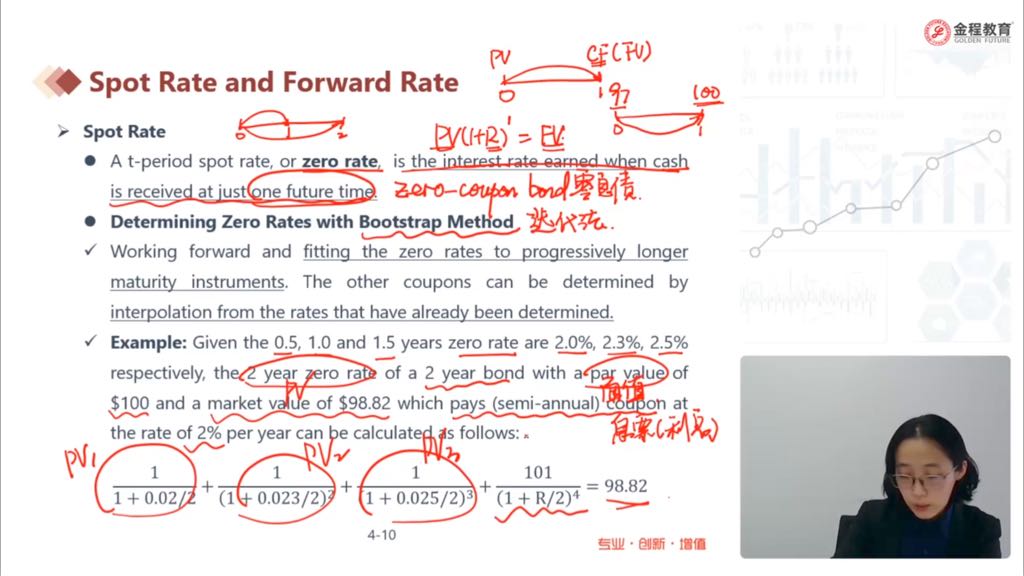 金程教育
GOLDEN FUTURE
Spot Rate and Forward Rate
PV
CF(FV)
0
1
97
100
0
1
0
1
2
PV(1+R)¹ = FV
➢ Spot Rate
● A t-period spot rate, or zero rate, is the interest rate earned when cash
is received at just one future time.
zero-coupon bond 零息债.
● Determining Zero Rates with Bootstrap Method
迭代法.
✓ Working forward and fitting the zero rates to progressively longer
maturity instruments. The other coupons can be determined by
interpolation from the rates that have already been determined.
✓ Example: Given the 0.5, 1.0 and 1.5 years zero rate are 2.0%, 2.3%, 2.5%
respectively, the 2 year zero rate of a 2 year bond with a par value of
PV
面值
$100 and a market value of $98.82 which pays (semi-annual) coupon at
息票(利息)
the rate of 2% per year can be calculated as follows:
PV₁
PV₂
PV₃
1/(1 + 0.02/2) + 1/(1 + 0.023/2)² + 1/(1 + 0.025/2)³ + 101/(1 + R/2)⁴ = 98.82
4-10
专业·创新·增值